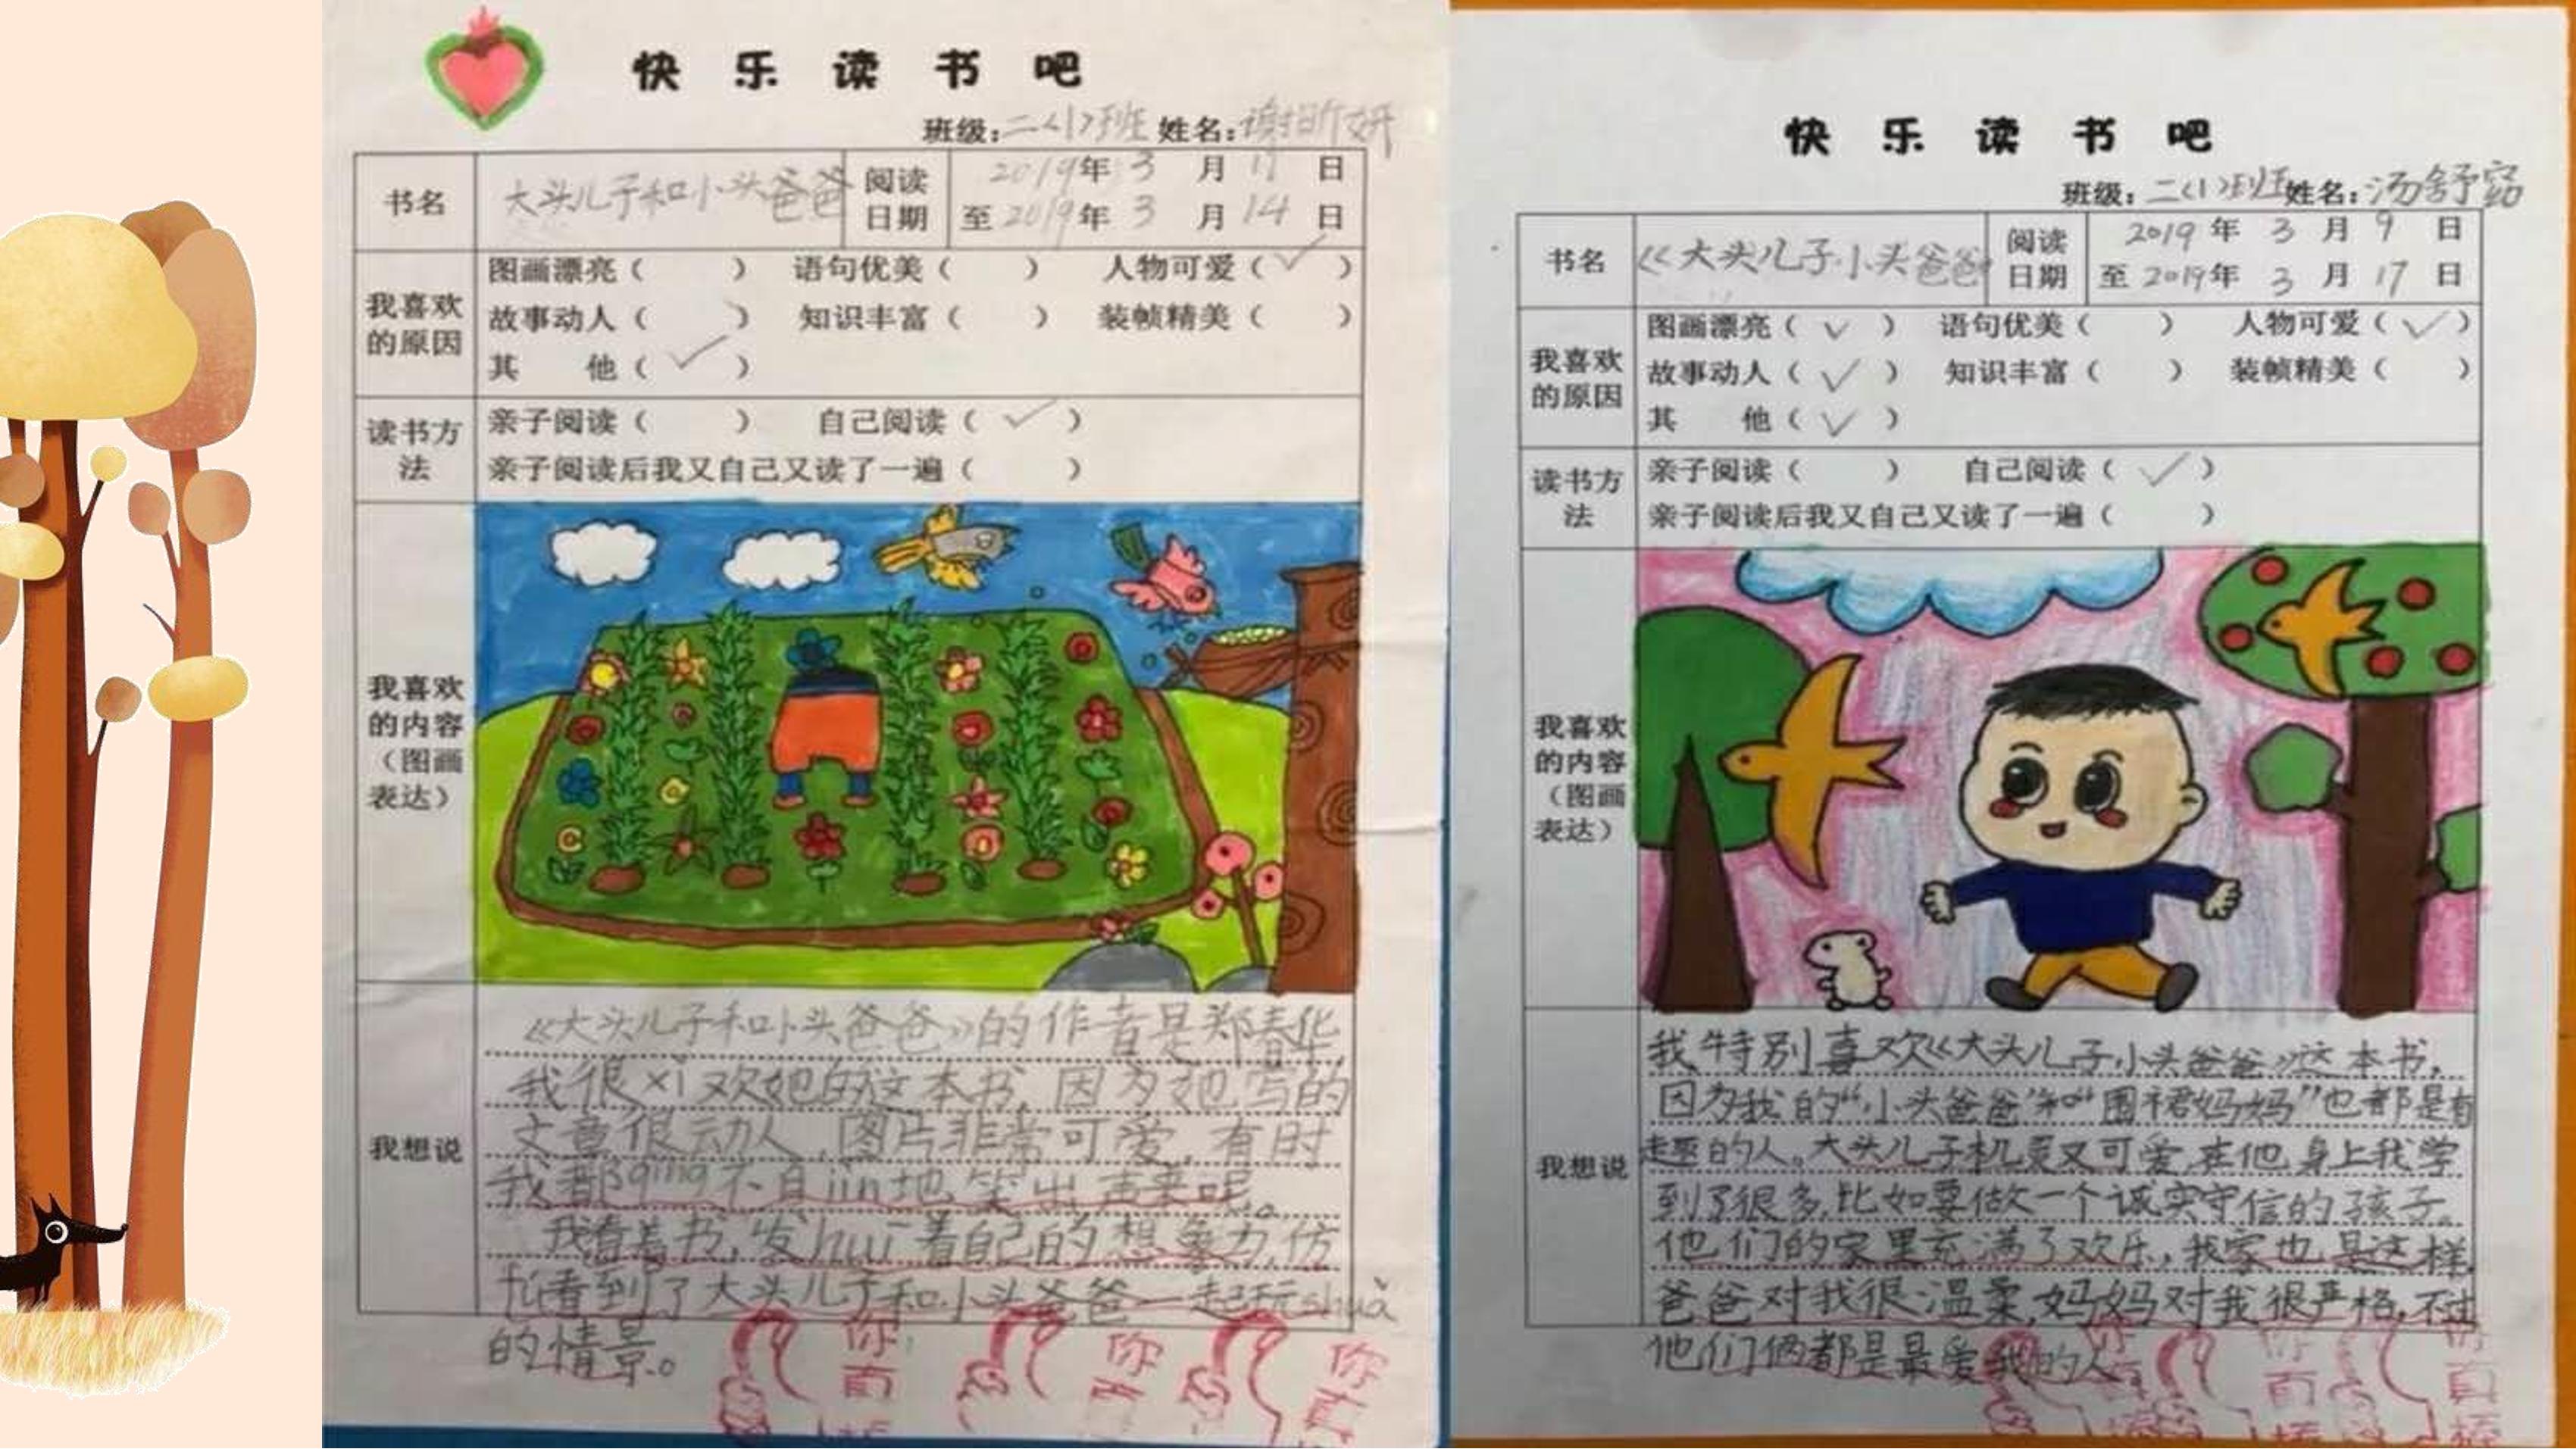 快乐读书吧
班级：二〈1〉班 姓名：谢昕妍
书名
大头儿子和小头爸爸
阅读日期
2019年3月11日
至2019年3月14日
我喜欢的原因
图画漂亮（ ） 语句优美（ ） 人物可爱（✓）
故事动人（ ） 知识丰富（ ） 装帧精美（ ）
其 他（✓）
读书方法
亲子阅读（ ） 自己阅读（✓）
亲子阅读后我又自己又读了一遍（ ）
我喜欢的内容（图画表达）
我想说
《大头儿子和小头爸爸》的作者是郑春华,
我很xǐ欢她的这本书,因为她写的
文章很动人,图片非常可爱,有时
我都qíng不自jīn地笑出声来呢。
我看着书,发huī着自己的想象力,仿
fú看到了大头儿子和小头爸爸一起玩shuǎ
的情景。
你真
你真
你真
快乐读书吧
班级：二〈1〉班 姓名：汤舒
书名
《大头儿子小头爸爸
阅读日期
2019年3月9日
至2019年3月17日
我喜欢的原因
图画漂亮（✓） 语句优美（ ） 人物可爱（✓）
故事动人（✓） 知识丰富（ ） 装帧精美（ ）
其 他（✓）
读书方法
亲子阅读（ ） 自己阅读（✓）
亲子阅读后我又自己又读了一遍（ ）
我喜欢的内容（图画表达）
我想说
我特别喜欢《大头儿子小头爸爸》这本书,
因为我的“小头爸爸”和“围裙妈妈”也都是有
趣的人。大头儿子机灵又可爱,在他身上我学
到了很多,比如要做一个诚实守信的孩子。
他们的家里充满了欢乐,我家也是这样,
爸爸对我很温柔,妈妈对我很严格,不过
他们俩都是最爱我的人。
你真棒